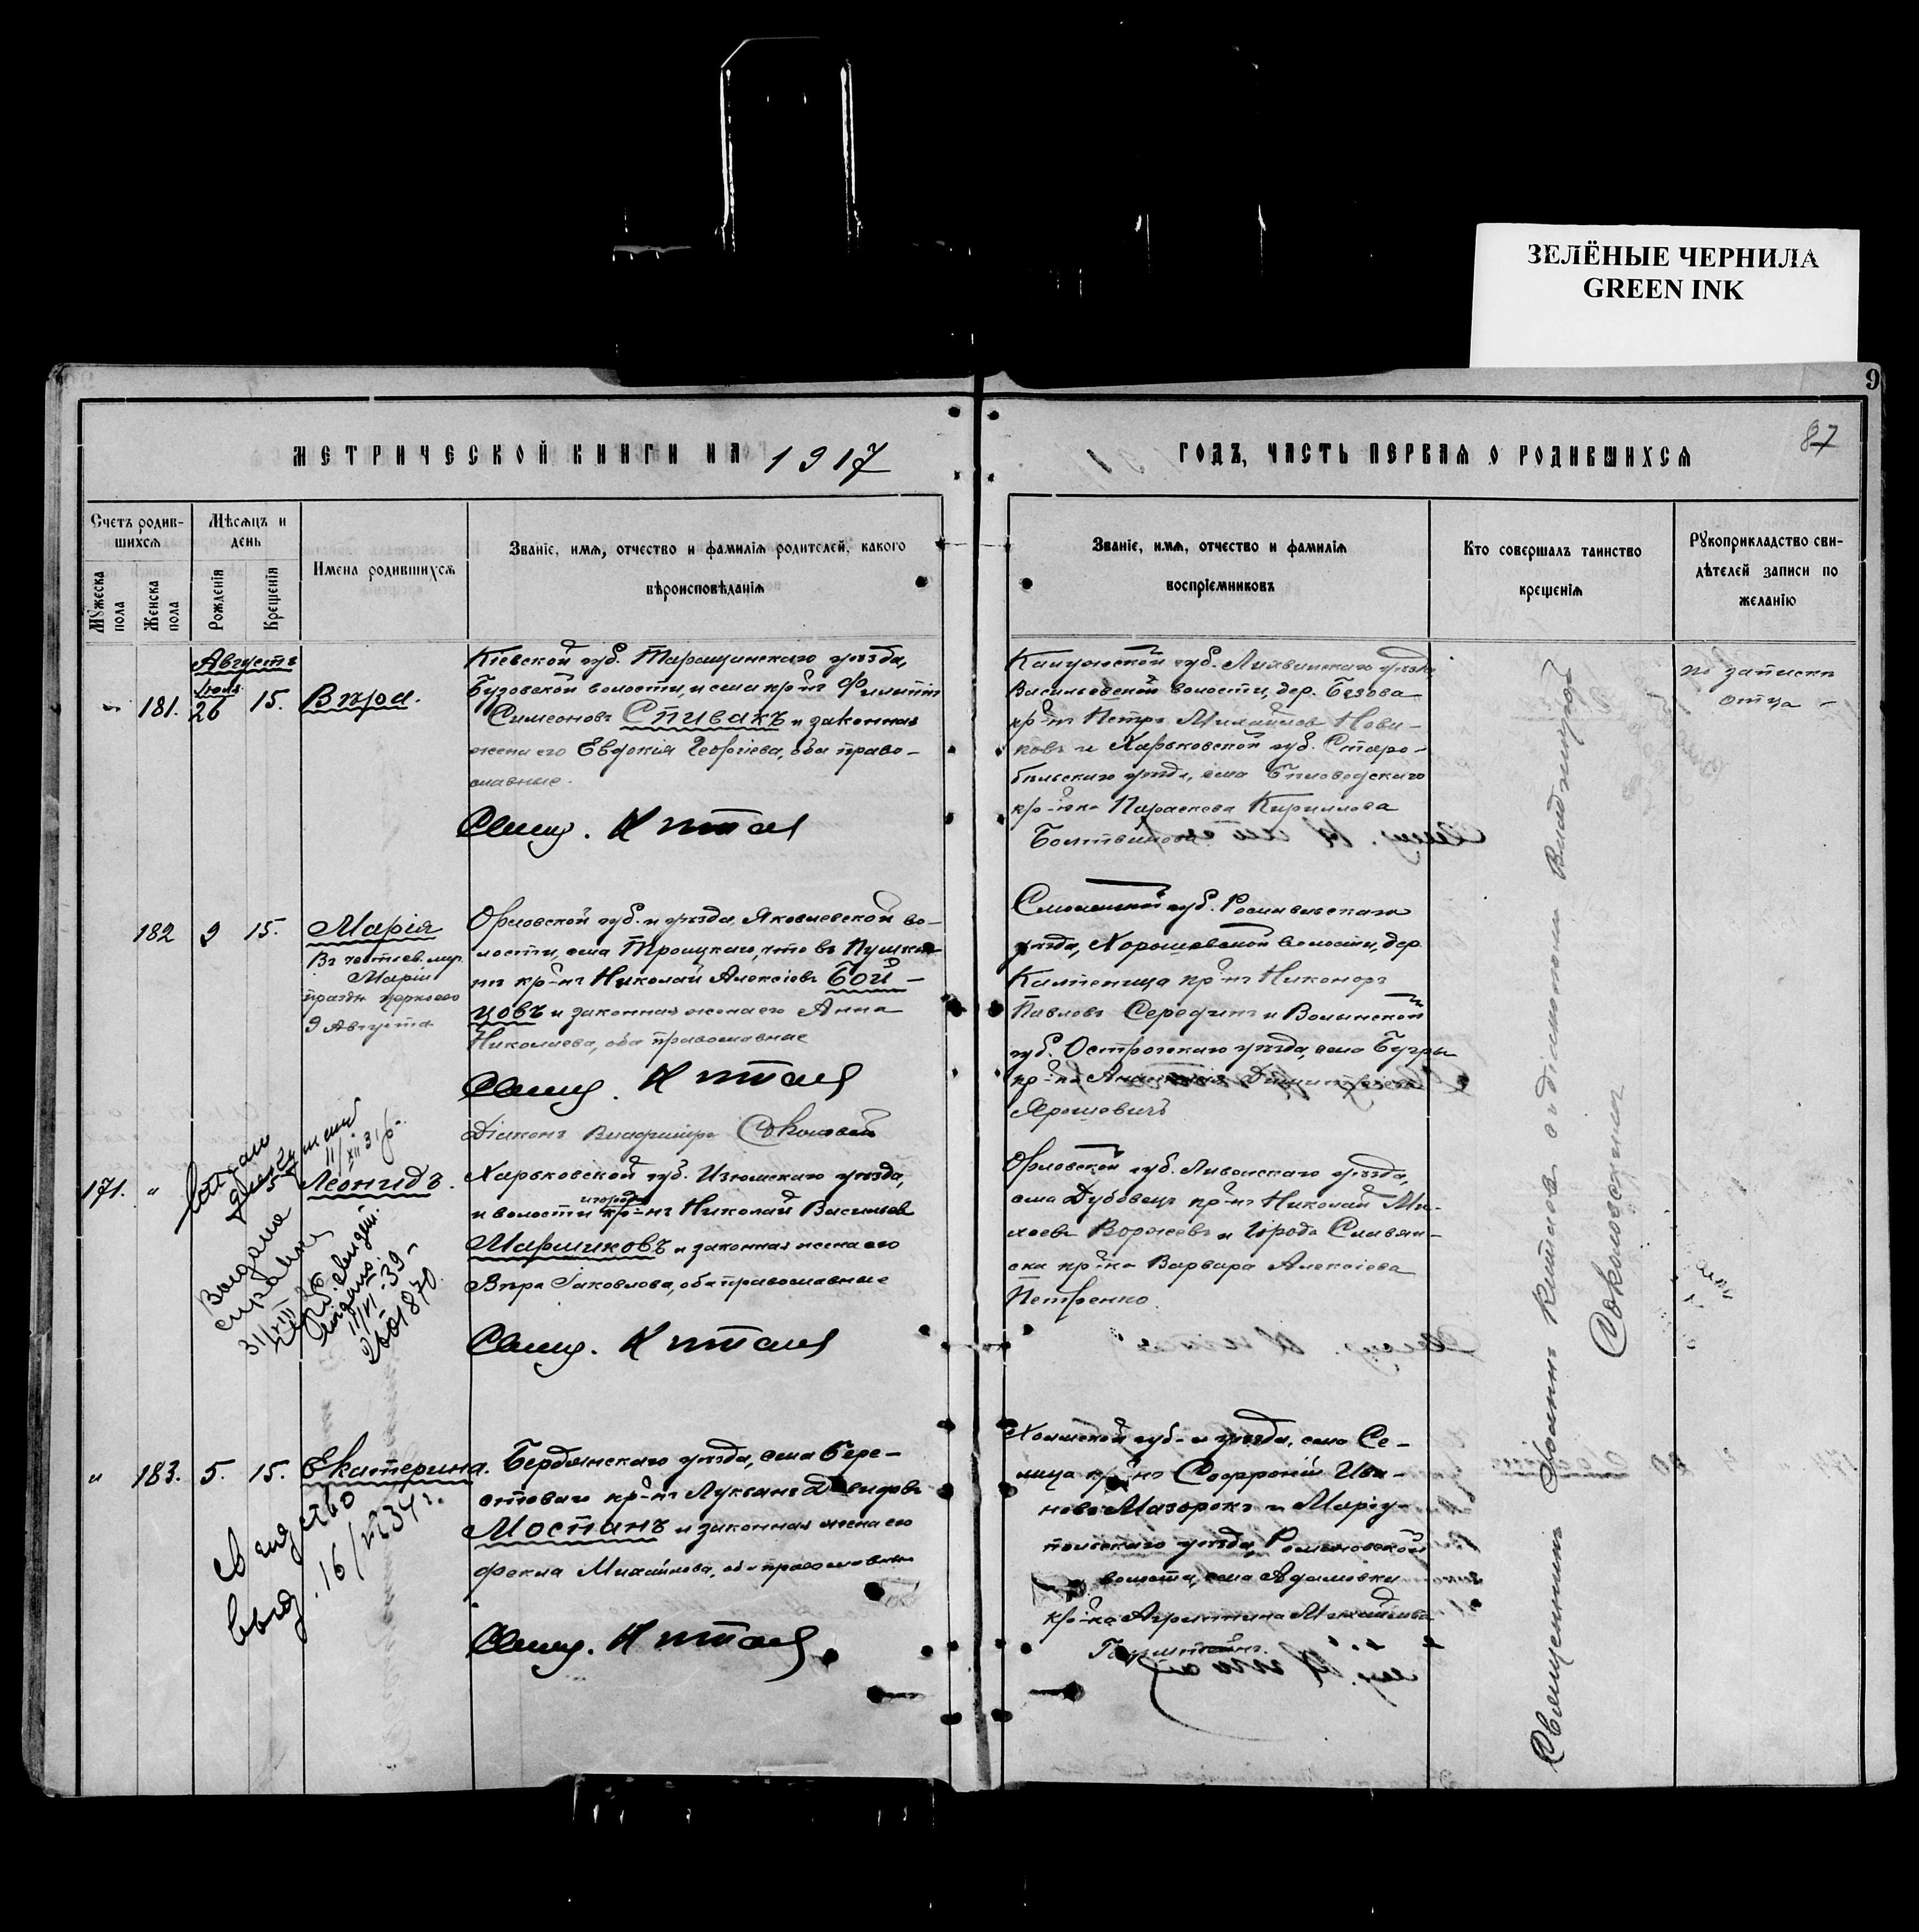 ЗЕЛЁНЫЕ ЧЕРНИЛА
GREEN INK
9
87
МЕТРИЧЕСКОЙ КНИГИ НА 1917
ГОДЪ, ЧАСТЬ ПЕРВАЯ О РОДИВШИХСЯ
Счетъ родив-
шихся
Мужеска пола
Женска пола
Мѣсяцъ и
день
Рожденія
Крещенія
Имена родившихся
Званіе, имя, отчество и фамилія родителей, какого
вѣроисповѣданія
Званіе, имя, отчество и фамилія
воспріемниковъ
Кто совершалъ таинство
крещенія
Рукоприкладство сви-
дѣтелей записи по
желанію
Августъ
Іюля
181. 26 15. Вѣра.
Кіевской губ. Таращанскаго уѣзда,
Бузовской волости, и села кр-нъ Филиппъ
Симеоновъ Спивакъ и законная
жена его Евдокія Георгіева, оба право-
славные.
Свящ. Китаевъ
Калужской губ. Лихвинскаго уѣзда
Васильевской волости, дер. Безова
кр-нъ Петръ Михайловъ Нови-
ковъ и Харьковской губ. Старо-
бѣльскаго уѣзда, села Бѣловодскаго
кр-нка Параскева Кириллова
Болтвинова
по запискѣ
отца
182 9 15. Марія
Въ честь св. мир.
Маріи
праздн. церковю
9 Августа
Орловской губ. и уѣзда, Яковлевской во-
лости, села Троицкаго, что въ Пушка-
нѣ кр-нъ Николай Алексіевъ Бой-
цовъ и законная жена его Анна
Николаева, оба православные
Свящ. Китаевъ
Діаконъ Владиміръ
Смоленской губ. Рославльскаго
уѣзда, волости, дер.
кр-нъ Никоноръ
Павловъ Середин и Волынской
губ. Острожскаго уѣзда, села Бугры
кр-ка Димитріева
Ярошевичъ
171. " 5 Леонидъ.
11/XII 31 г.
Выдана
справка
31/VIII
11/VI-39-
Харьковской губ. Изюмскаго уѣзда,
и волости кр-нъ Николай Васильевъ
Маршиковъ и законная жена его
Вѣра Іаковлева, оба православные
Свящ. Китаевъ
Орловской губ. Ливенскаго уѣзда,
села Дубовецъ кр-нъ Николай Ми-
хеевъ и города Славян-
ска кр-нка Варвара Алексіева
Петренко.
" 183. 5. 15. Екатерина.
Свидѣтство
выд. 16/ 34 г.
Бердянскаго уѣзда, села Бере-
стоваго кр-нъ Лукьянъ Давидовъ
Мостанъ и законная жена его
Фекла Михайлова, оба православные
Свящ. Китаевъ
Холмской губ. и уѣзда, села Се-
лища кр-нъ Софроній Ива-
новъ Мазорокъ и Маріу-
польскаго уѣзда, Романовской
волости, села Адамовки
кр-нка Агриппина Михайлова
Священникъ Іоаннъ Китаевъ съ діакономъ Владиміромъ
Соколовскимъ